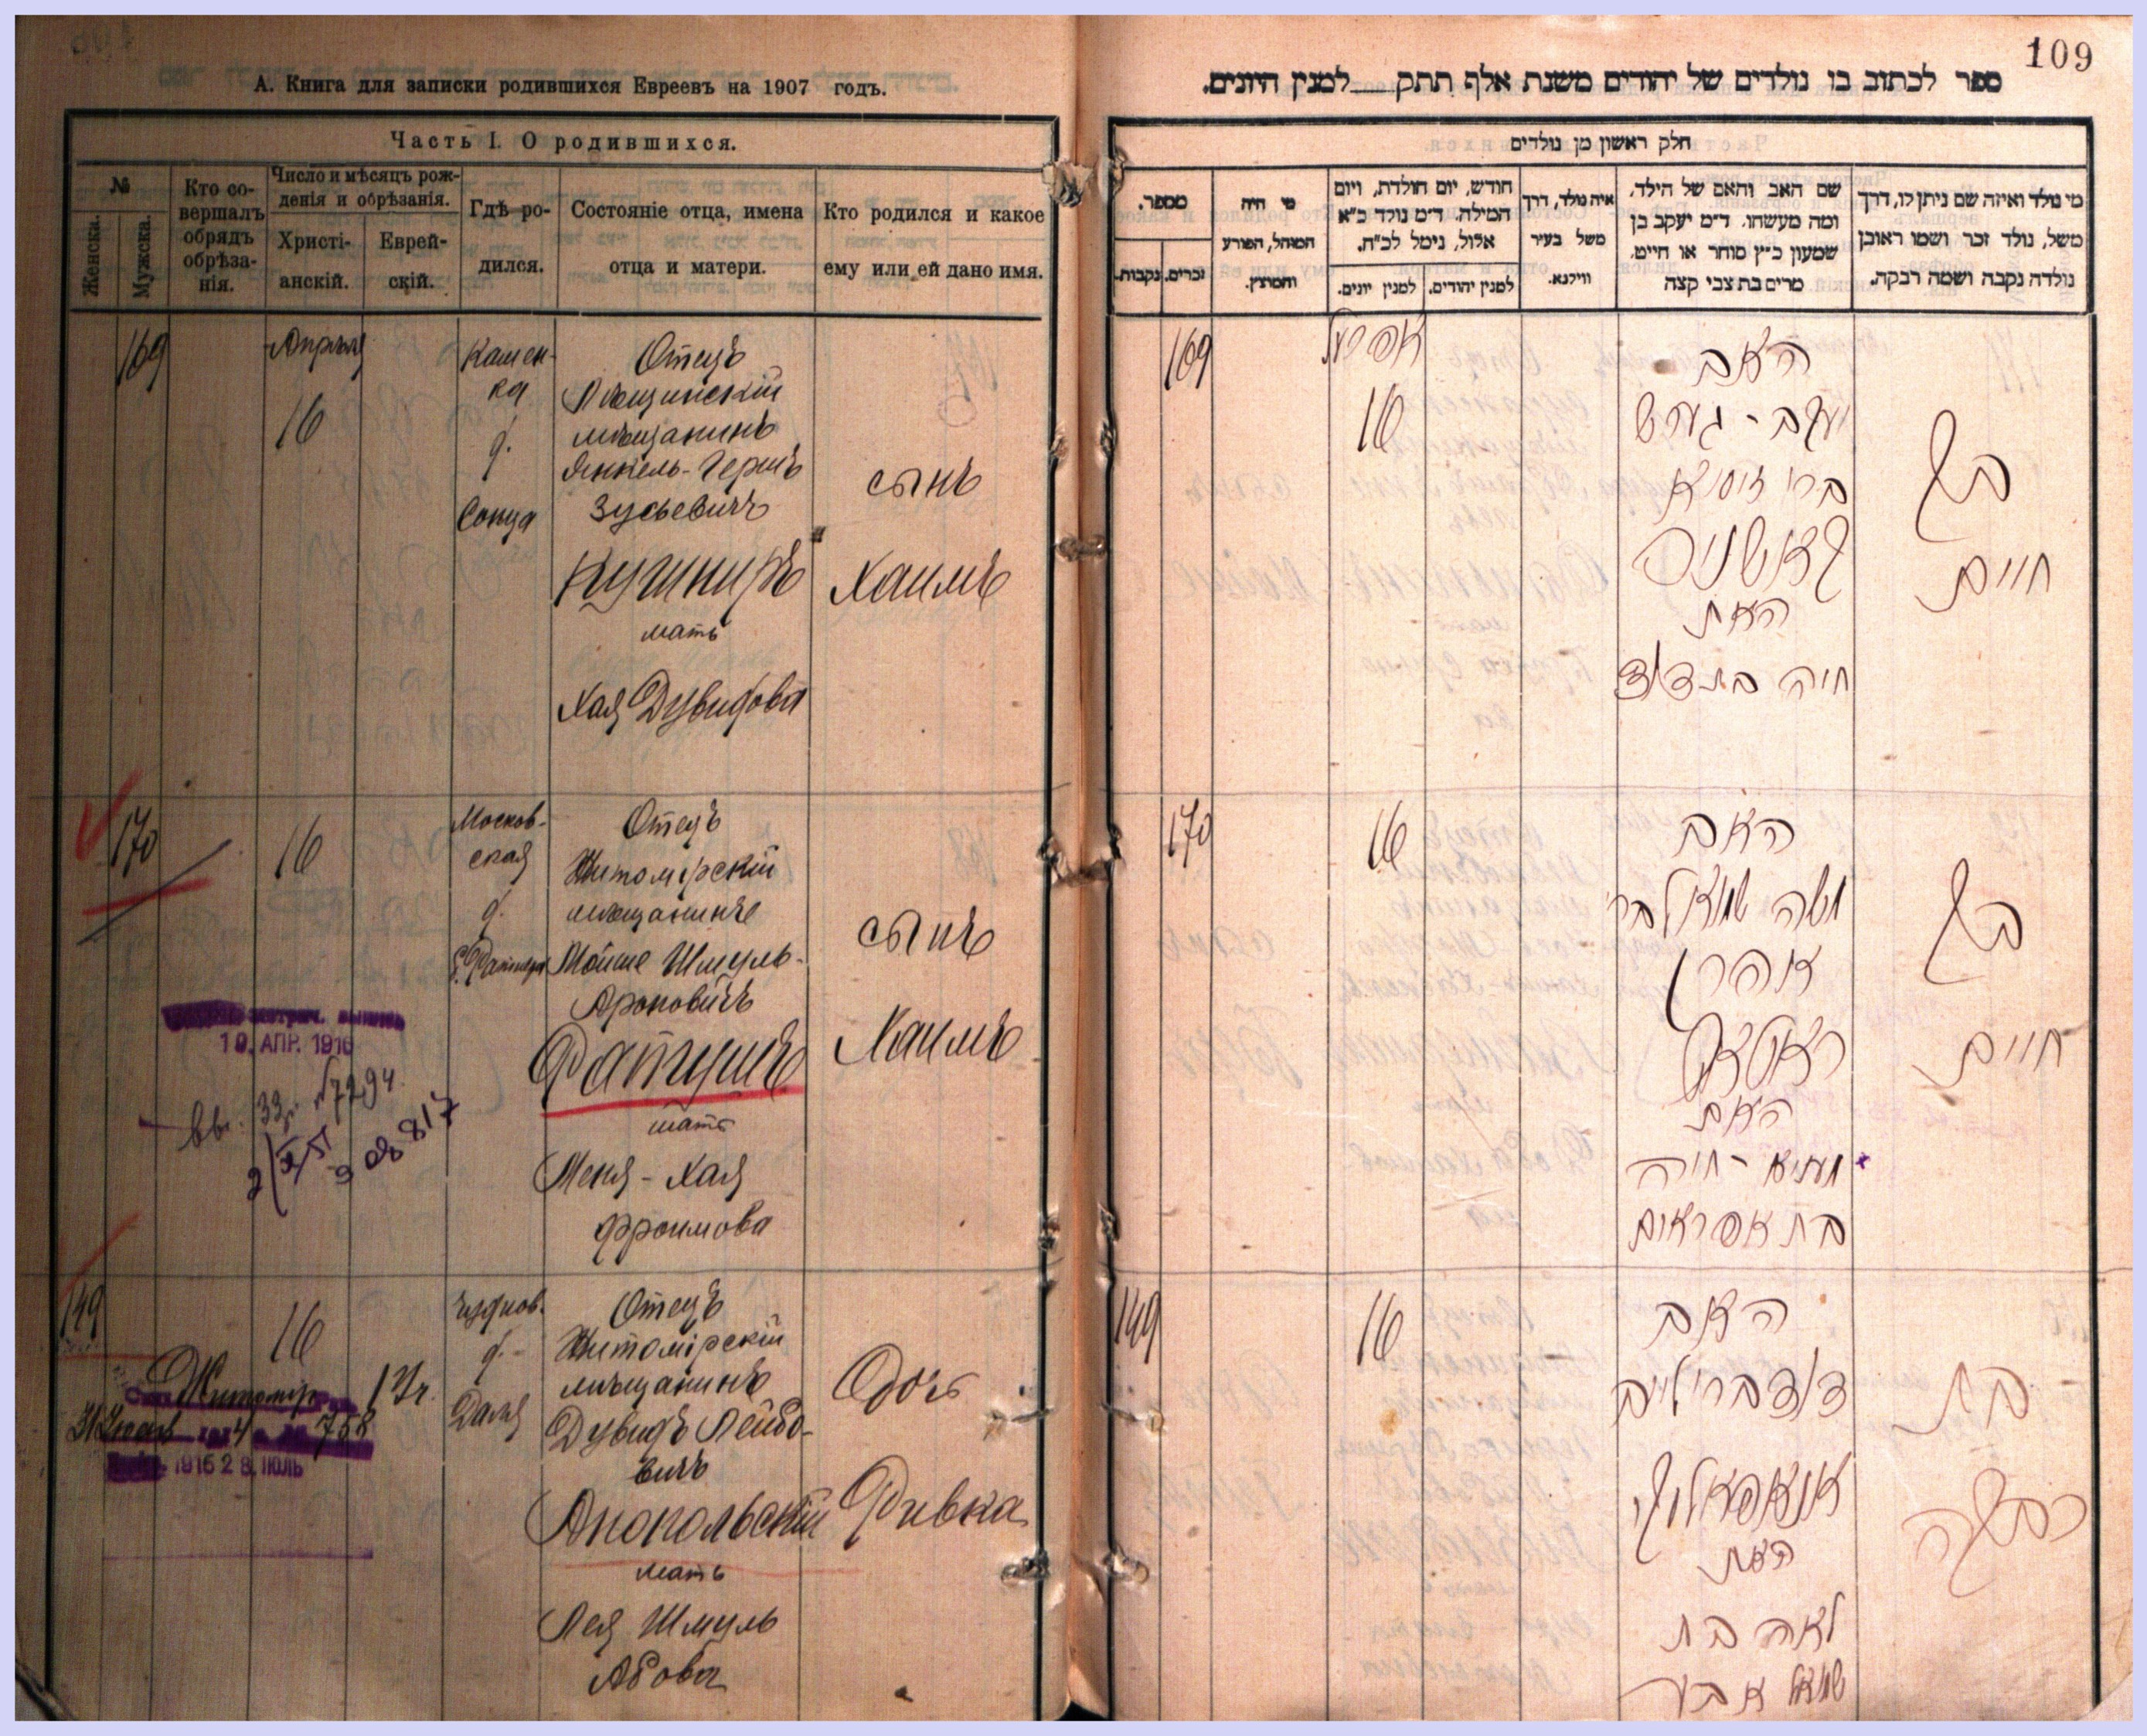 А. Книга для записки родившихся Евреевъ на 1907 годъ.
Часть I. О родившихся.
№
Женска.
Мужска.
Кто со-
вершалъ
обрядъ
обрѣза-
нія.
Число и мѣсяцъ рож-
денія и обрѣзанія.
Христі-
анскій.
Еврей-
скій.
Гдѣ ро-
дился.
Состояніе отца, имена
отца и матери.
Кто родился и какое
ему или ей дано имя.
169
Апрѣля
16
Камен-
ка
д.
Отецъ
мѣщанинъ
Янкель-Гершъ
Зусьевичъ
Кушниръ
мать
Хая Дувидова
сынъ
Хаимъ
170
16
Москов-
ская
д.
Отецъ
Житомірскій
мѣщанинъ
Мойше Шмуль-
Ароновичъ
Ратушъ
мать
Меня-Хая
Фроимова
сынъ
Хаимъ
метрич. выпись
19. АПР. 1916
вы. 33 №7294
149
16
Чуднов.
д.
Отецъ
Житомірскій
мѣщанинъ
Дувидъ Лейбо-
вичъ
Анопольскій
мать
Лея Шмуль
Абова
Дочь
Ривка
Житомір
758
1916 28 ІЮЛЬ
109
ספר לכתוב בו נולדים של יהודים משנת אלף תתק למנין היונים.
חלק ראשון מן נולדים
מספר.
זכרים.
נקבות.
מי היה
המוהל, הפורע
והמוצץ.
חודש, יום הולדת, ויום
המילה. ד״מ נולד כ״א
אלול, נימל לכ״ח.
למנין יונים.
למנין יהודים.
איה נולד, דרך
משל בעיר
ווילנא.
שם האב והאם של הילד,
ומה מעשהו. ד״מ יעקב בן
שמעון כ״ץ סוחר או חייט.
מרים בת צבי קצה
מי נולד ואיזה שם ניתן לו, דרך
משל, נולד זכר ושמו ראובן
נולדה נקבה ושמה רבקה.
169
אפריל
16
האב
יעקב - גערש
ברי זוסיא
קאשניר
האם
חיה בת דוד
בן
חיים
170
16
האב
משה שמואל בר
אהרן
ראטאש
האם
מעניא - חיה
בת אפראים
בן
חיים
149
16
האב
דוד ברי לייב
אנאפאלסקי
האם
לאה בת
שמואל אבא
בת
רבקה